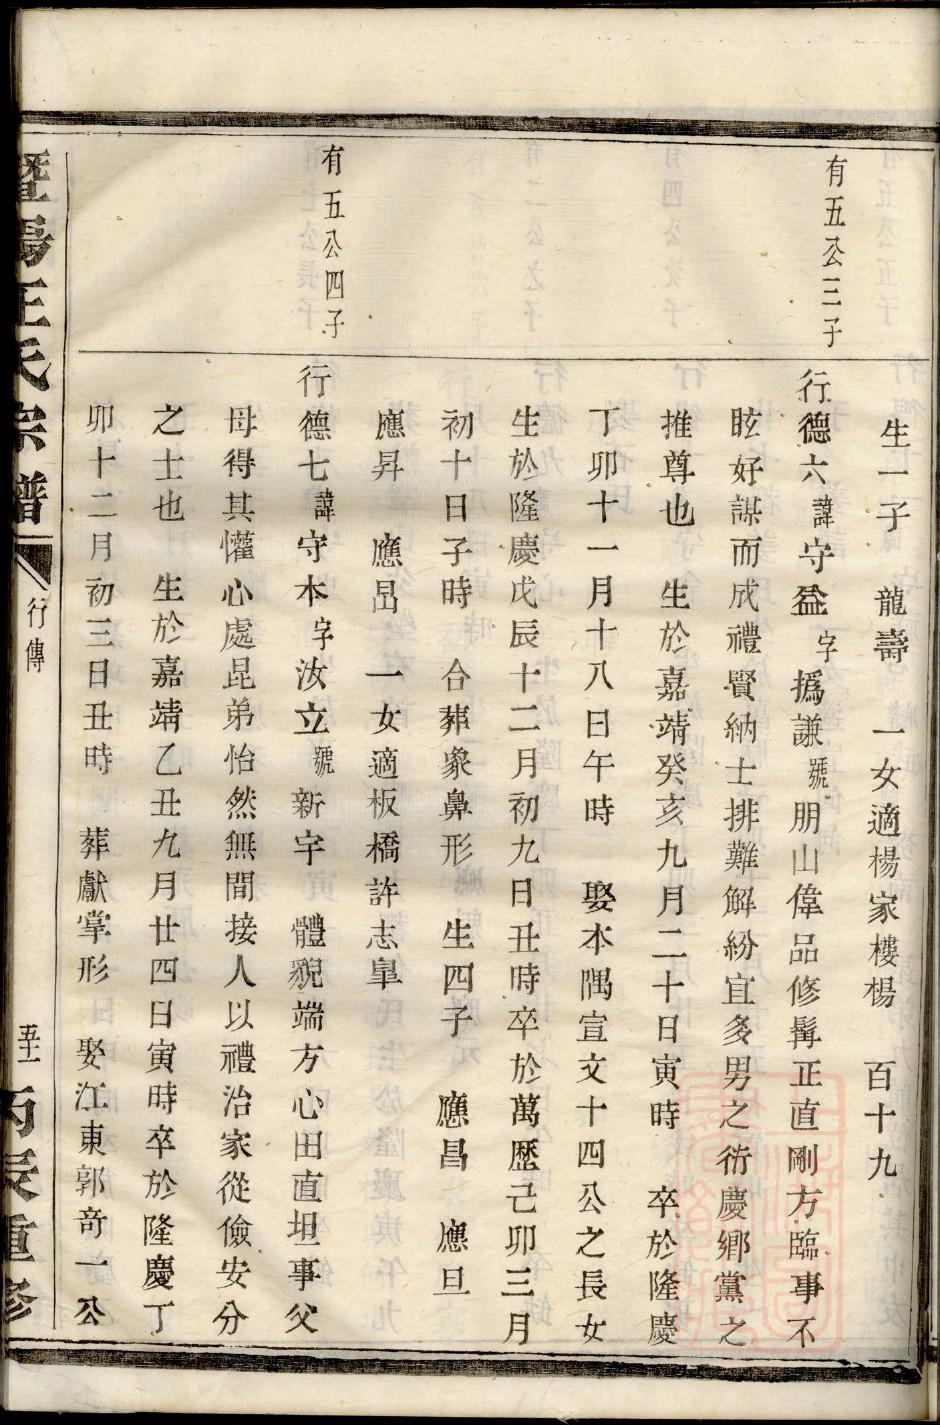 有五公三子
生一子　龍壽　一女適楊家樓楊　百十九
行德六諱守益字撝謙號朋山偉品修髯正直剛方臨事不
眩好謀而成禮賢納士排難解紛宜多男之衍慶鄉黨之
推尊也　生於嘉靖癸亥九月二十日寅時　卒於隆慶
丁卯十一月十八日午時　娶本隅宣文十四公之長女
生於隆慶戊辰十二月初九日丑時卒於萬歷己卯三月
初十日子時　合葬象鼻形　生四子　應昌　應旦
應昇　應昺　一女適板橋許志皐
有五公四子
行德七諱守本字汝立號新宇　體貌端方心田直坦事父
母得其懽心處昆弟怡然無間接人以禮治家從儉安分
之士也　生於嘉靖乙丑九月廿四日寅時卒於隆慶丁
卯十二月初三日丑時　葬獻掌形　娶江東郭奇一公
暨陽王氏宗譜
行傳
丙辰重修